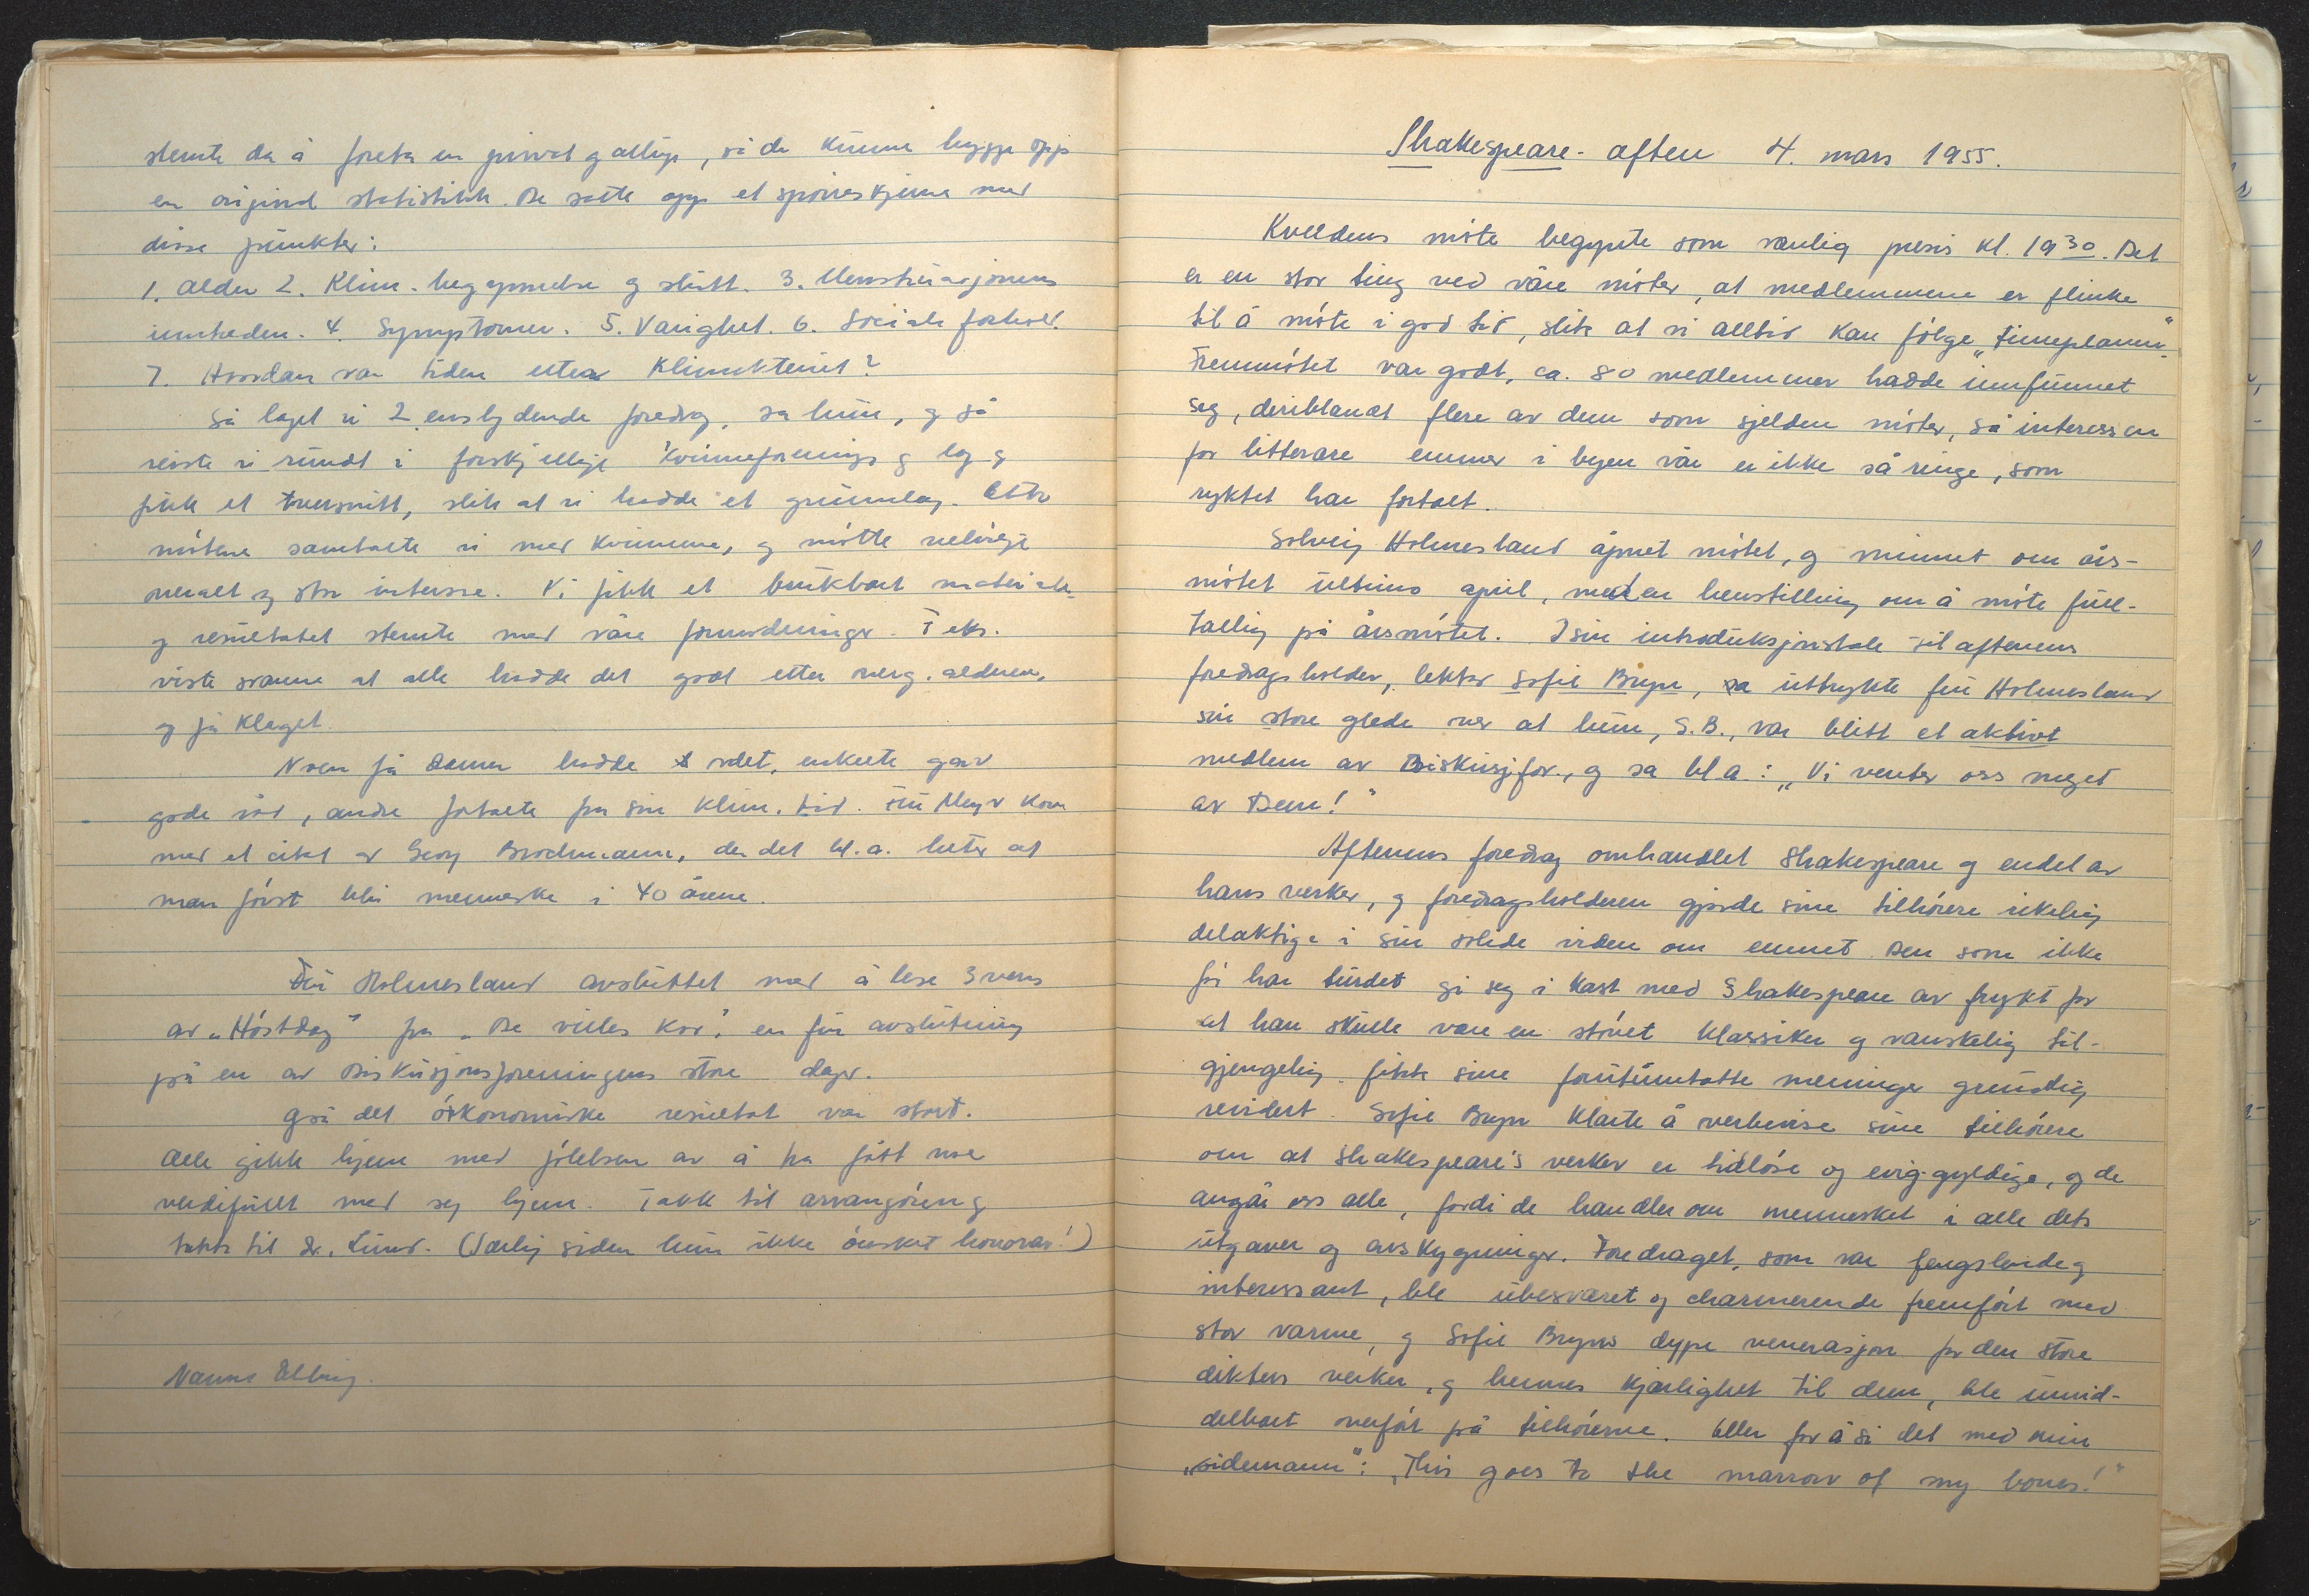 stemte da å foreta en privat gallup, så de kunne bygge opp
en original statistikk. De satte opp et spørreskjema med
disse punkter:
1. Alder 2. Klim. begynnelse og slutt. 3. Menstruasjonens
inntreden. 4. Symptomer. 5. Varighet. 6. Sociale forhold.
7. Hvordan var tiden etter Klimakteriet?
Så laget vi 2 enslydende foredrag, sa hun, og så
reiste vi rundt i forskjellige kvinneforenings og lag og
fikk et tversnitt, slik at vi hadde et grunnlag. Etter
møtene samtalte vi med kvinnene, og møtte velvilje
overalt og stor interesse. Vi fikk et brukbart materiale
og resultatet stemte med våre formodninger. F eks.
viste svarene at alle hadde det godt etter overg. alderen,
og få klaget.
Noen få damer hadde ordet, enkelte gav
gode råd, andre fortalte fra sin klim. tid. Fru Meyer kom
med et citat av Georg Brochmann, der det bl.a. heter at
man først blir menneske i 40 årene.
Fru Holmesland avsluttet med å lese 3 vers
av „Høstdag" fra „De villes kor", en fin avslutning
på en av Diskusjonsforeningens store dager.
Også det økonomiske resultat var stort.
Alle gikk hjem med følelsen av å ha fått noe
verdifullt med seg hjem. Takk til arrangøren og
takk til dr. Lund. (Særlig siden hun ikke ønsket honorar!)
Nanna Ebbing.
Shakespeare-aften 4. mars 1955.
Kveldens møte begynte som vanlig presis kl. 19 30. Det
er en stor ting ved våre møter, at medlemmene er flinke
til å møte i god tid, slik at vi alltid kan følge „timeplanen".
Fremmøtet var godt, ca. 80 medlemmer hadde innfunnet
seg, deriblandt flere av dem som sjelden møter, så interessen
for litterære emner i byen vår er ikke så ringe, som
ryktet har fortalt.
Solveig Holmesland åpnet møtet, og minnet om års-
møtet ultimo april, med en henstilling om å møte full-
tallig på årsmøtet. I sin introduksjonstale til aftenens
foredragsholder, lektor Sofie Bryn, uttrykte fru Holmesland
sin store glede over at hun, S.B., var blitt et aktivt
medlem av Diskusjfor., og sa bl a: „Vi venter oss meget
av Dem!"
Aftenens foredrag omhandlet Shakespeare og endel av
hans verker, og foredragsholderen gjorde sine tilhørere rikelig
delaktige i sin solide viden om emnet. Den som ikke
før har turdet gi seg i kast med Shakespeare av frykt for
at han skulle være en støvet klassiker og vanskelig til-
gjengelig fikk sine forutinntatte meninger grundig
revidert. Sofie Bryn klarte å overbevise sine tilhørere
om at Shakespeare's verker er tidløse og evig-gyldige, og de
angår oss alle, fordi de handler om mennesket i alle dets
utgaver og avskygninger. Foredraget, som var fengslende og
interessant, ble ubesværet og charmerende fremført med
stor varme, og Sofie Bryns dype venerasjon for den store
dikters verker, og hennes kjærlighet til dem, ble umid-
delbart overført på tilhørerne. Eller for å si det med min
„sidemann": „This goes to the marrow of my bones!"